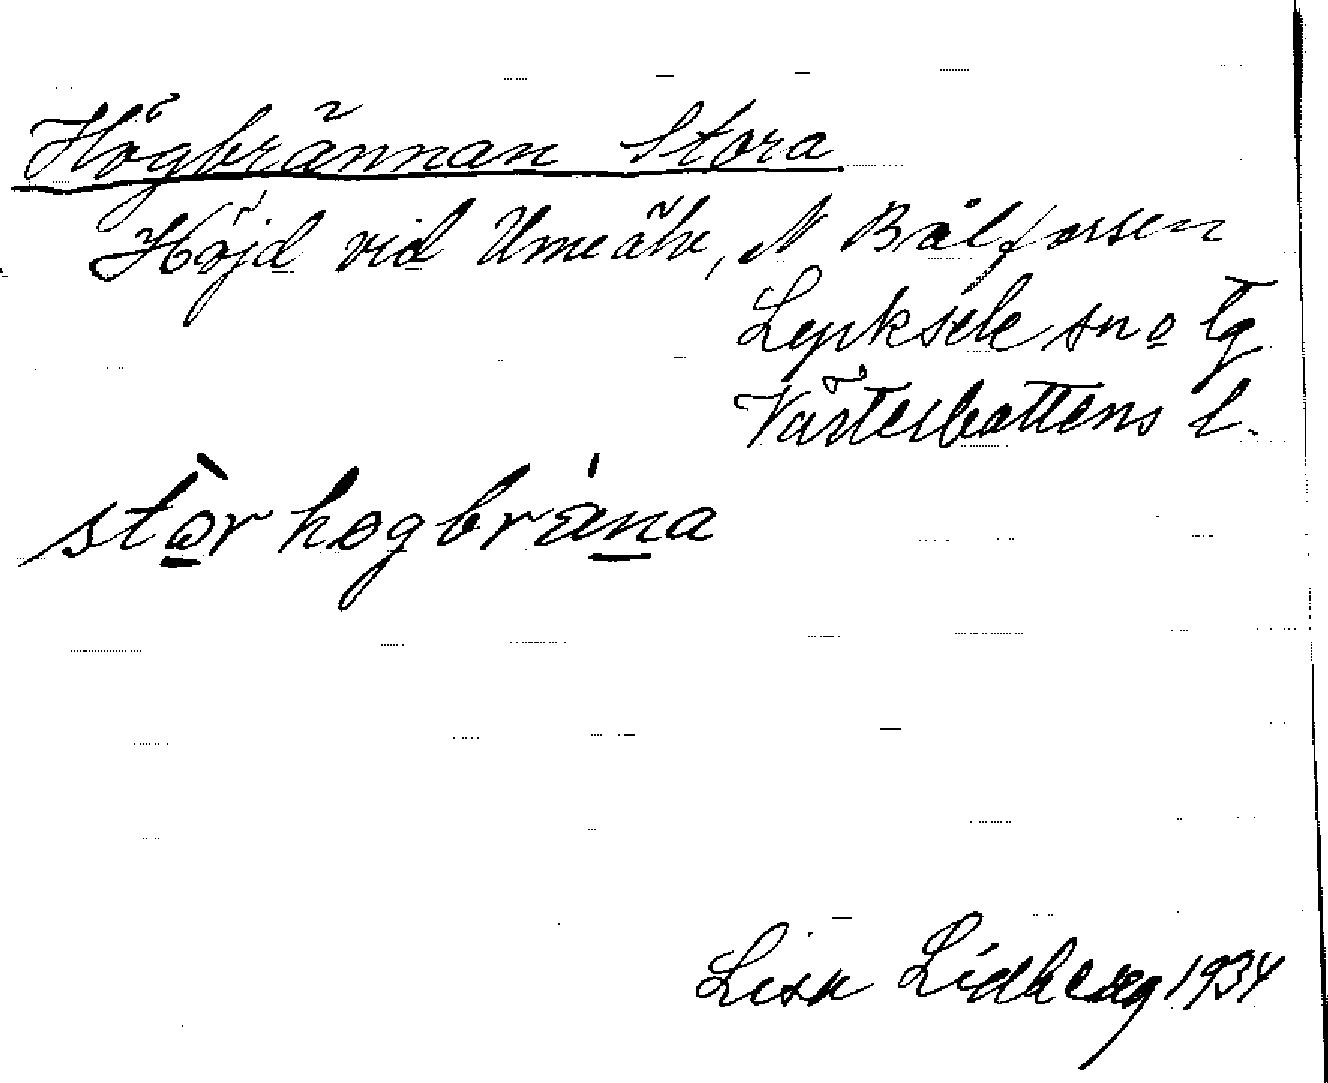 Högbrännan Stora
Höjd vid Umeälv, N Bålforsen
Lycksele sn o tg
Västerbottens l.
stòrhogbräna
Lisa Lidberg 1934